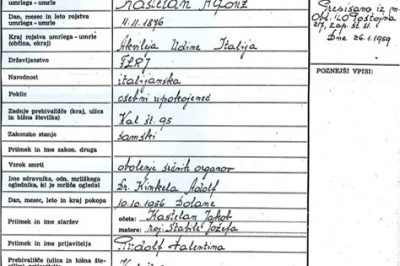 umrlega - umrle
Dan, mesec in leto rojstva umrlega - umrle
11.11.1876
Kraj rojstva umrlega - umrle (občina, okraj)
Akvileja Udine Italija
Državljanstvo
FLRJ
Narodnost
italijanska
Poklic
osebni upokojenec
Zadnje prebivališče (kraj, ulica in hišna številka)
Kal št. 95
Zakonsko stanje
samski
Priimek in ime zakon. druga
Vzrok smrti
obolenje sečnih organov
Ime zdravnika, odn. mrliškega oglednika, ki je mrliča ogledal
Dr. Kinkela Adolf
Dan, mesec, leto in kraj pokopa
10.10.1956 Dolane
Priimek in ime staršev
očeta: Jakob
matere: roj. Stabile Jožefa
Priimek in ime prijavitelja
Valentina
Prebivališče (ulica in hišna
Prepisano iz m.
Obč. LO Postojna
Dne 26.1.1959
POZNEJŠI VPISI: